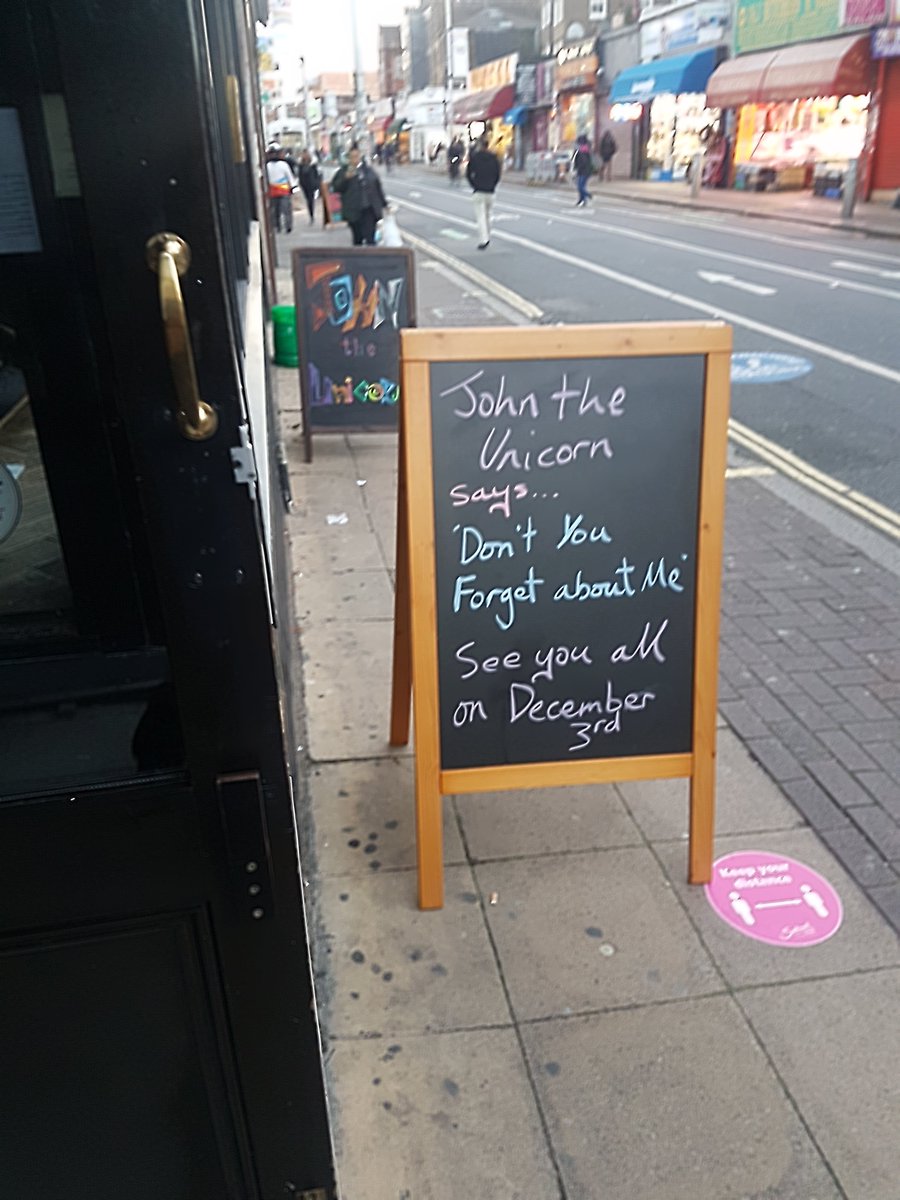 John the
Unicorn
says...
'Don't You
Forget about Me'
See you all
on December
3rd
JOHN
the
Unicorn
Keep your
distance